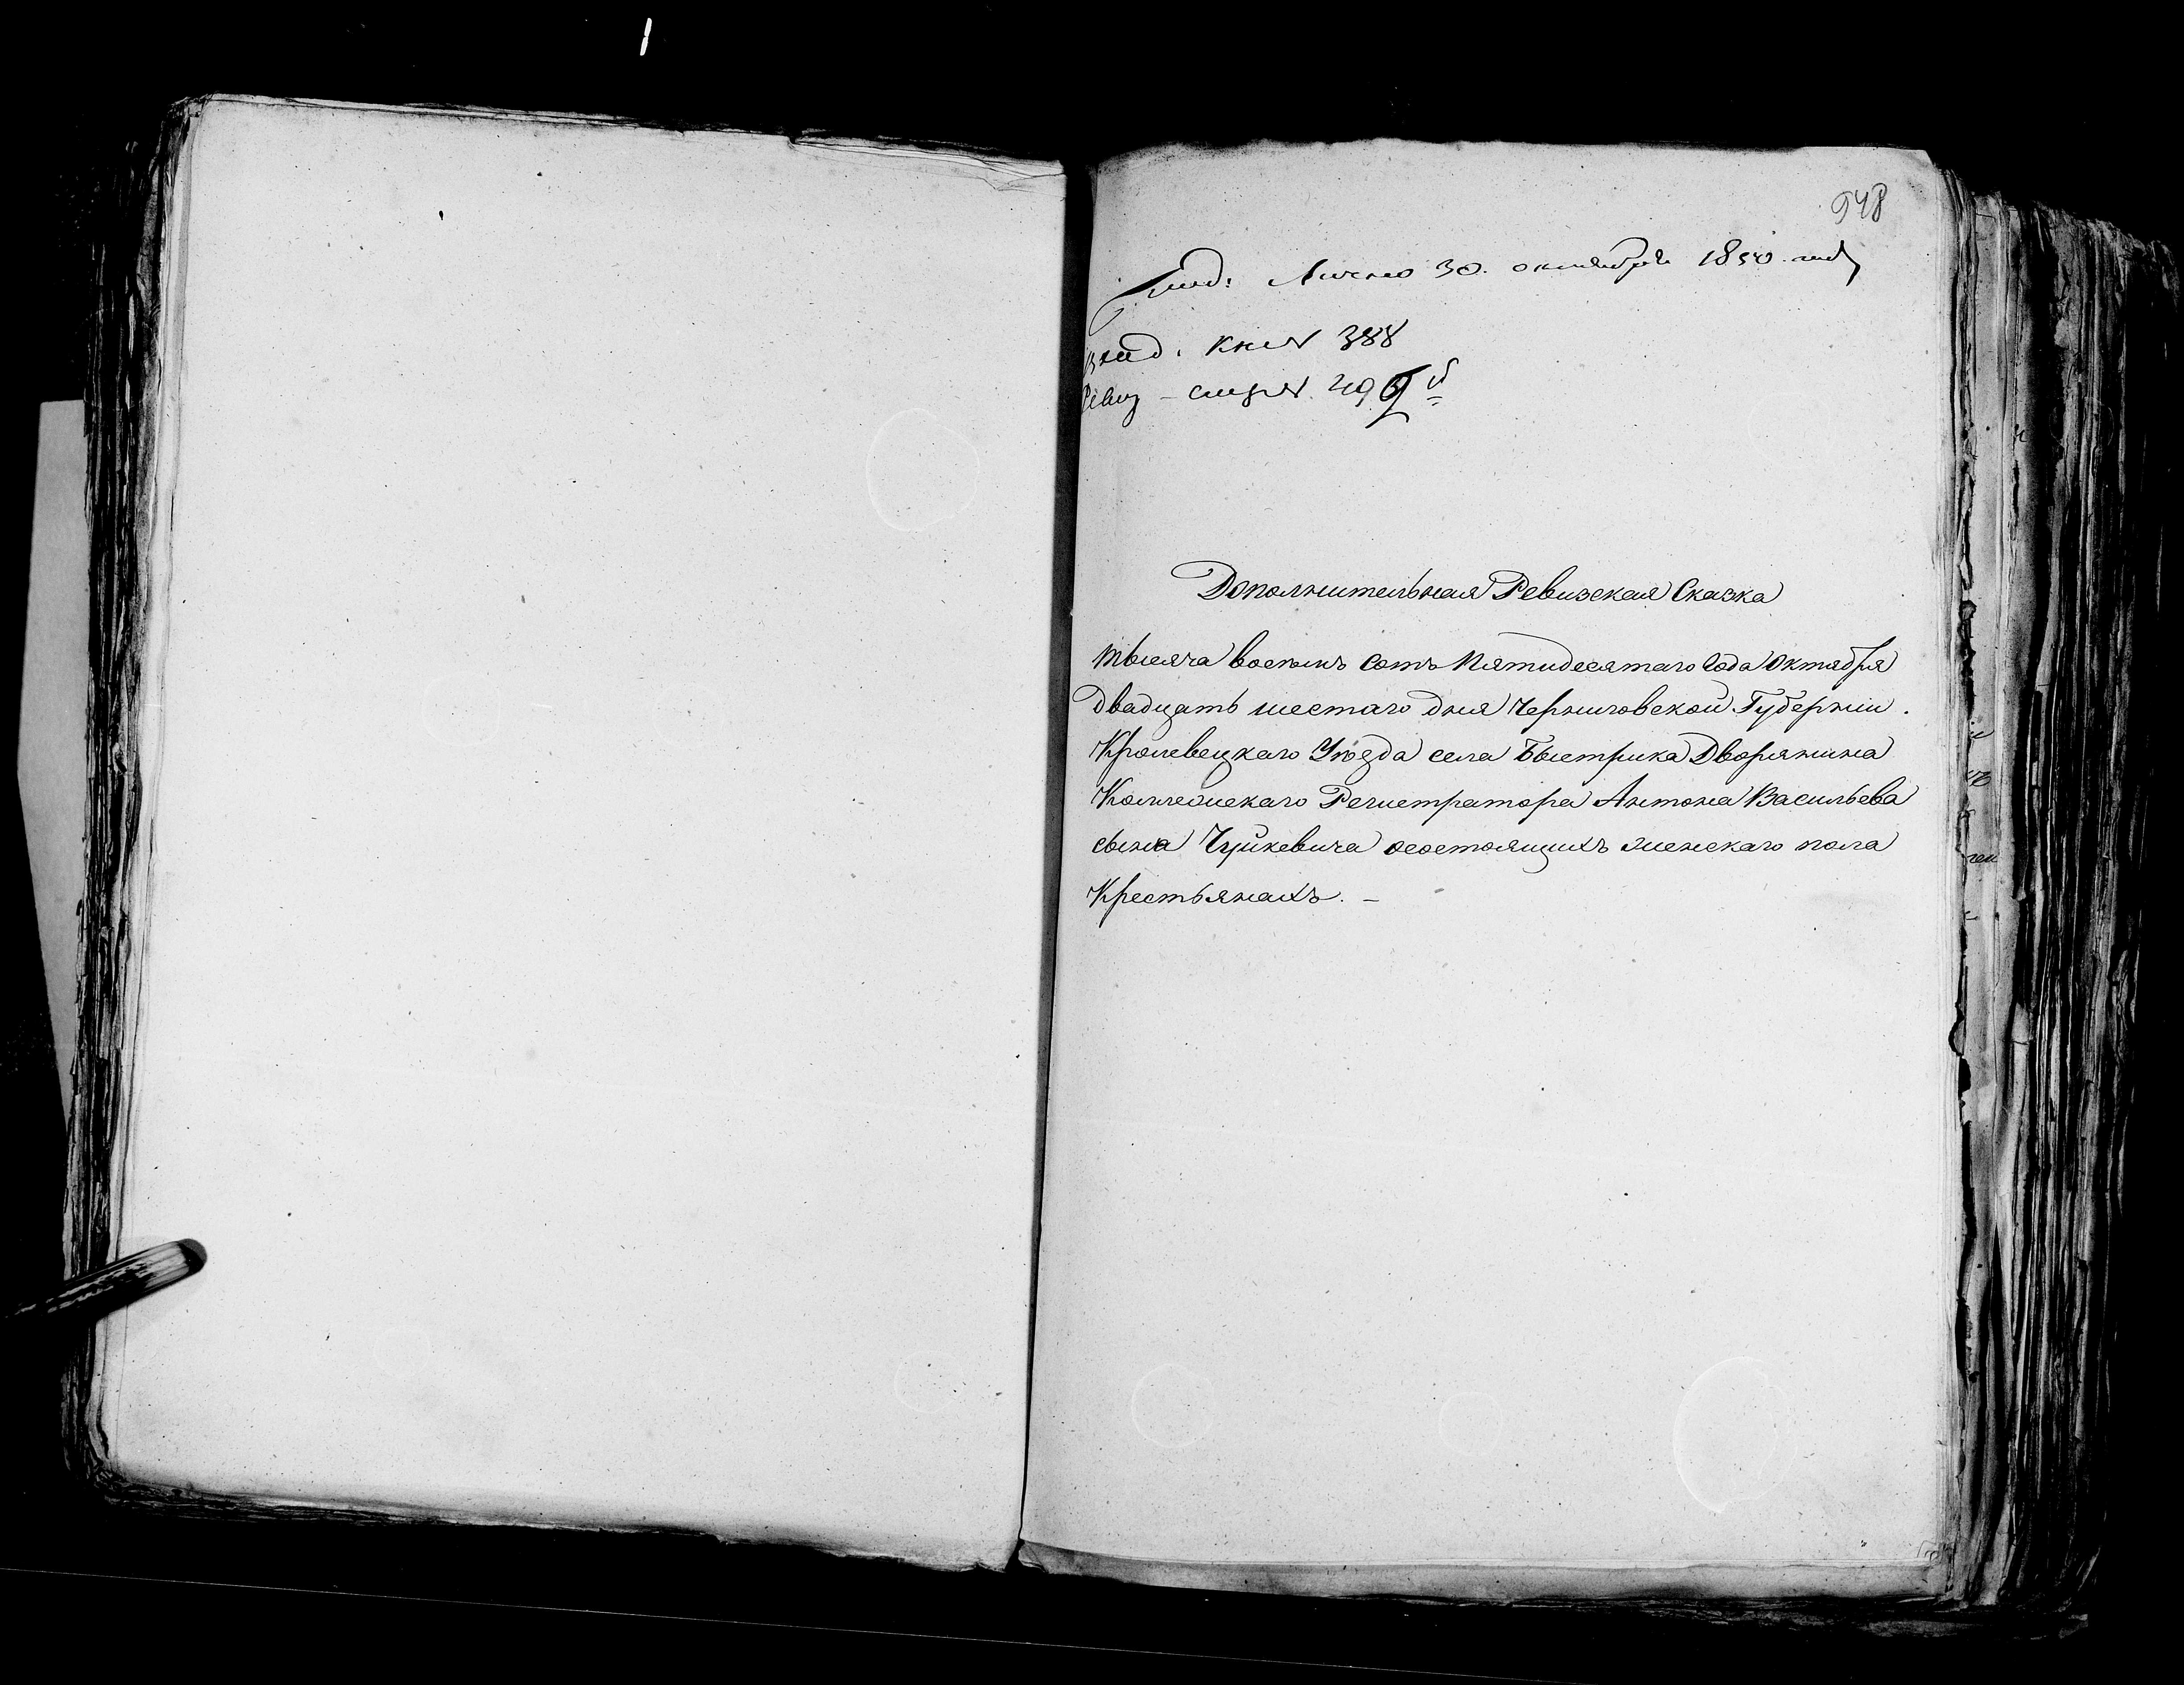 948
Под: Лично 30. октября 1850. года
вход. книг 388
Ревиз - 
Дополнительная Ревизская Сказка
тысяча восемь сотъ Пятидесятаго Года Октября
Двадцать шестаго дня Черниговской Губерніи.
Кролевецкаго Уѣзда села Быстрика Дворянина
Коллежскаго Регистратора Антона Васильева
сына Чуйкевича осостоящихъ женскаго пола
Крестьянахъ. -